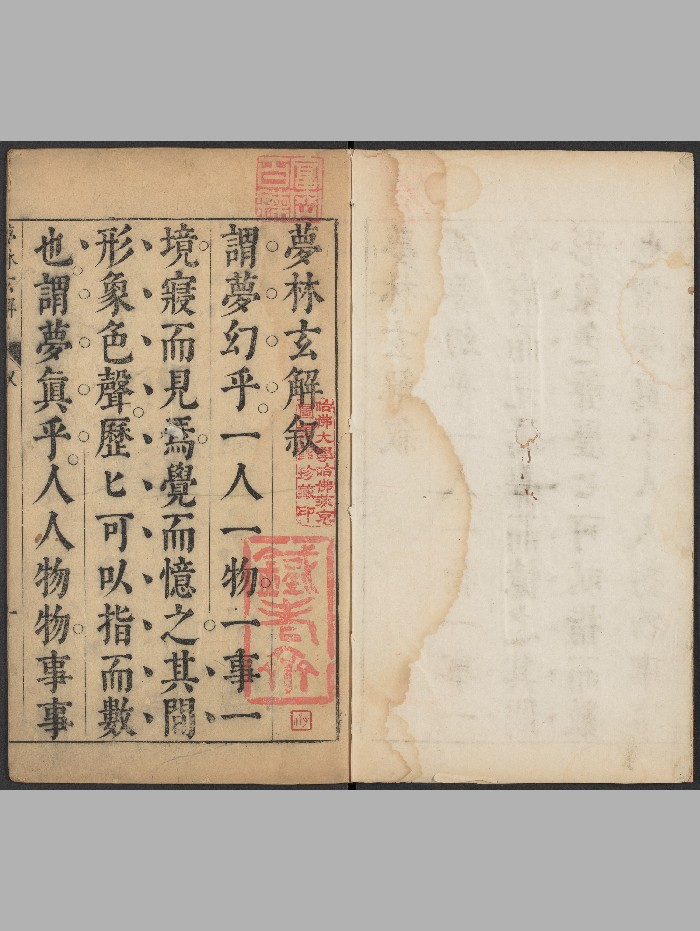 夢林玄解叙
謂夢幻乎一人一物一事一
境寢而見焉覺而憶之其間
形象色聲歷匕可以指而數
也謂夢眞乎人人物物事事
一
哈佛大學哈佛燕京
圖書館珍藏印